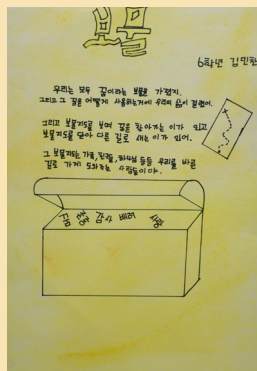 보물
6학년 김민찬
우리는 모두 꿈이라는 보물을 가졌지.
그리고 그 꿈을 어떻게 사용하는거에 우리의 삶이 걸렸어.
그리고 보물지도를 보며 꿈을 찾아가는 이가 있고
보물지도를 닫아 다른 길로 새는 이가 있어.
그 보물지도는 가족, 친구들, 하나님 등등 우리를 바른
길로 가게 도와주는 사람들이야.
감사 배려 사랑